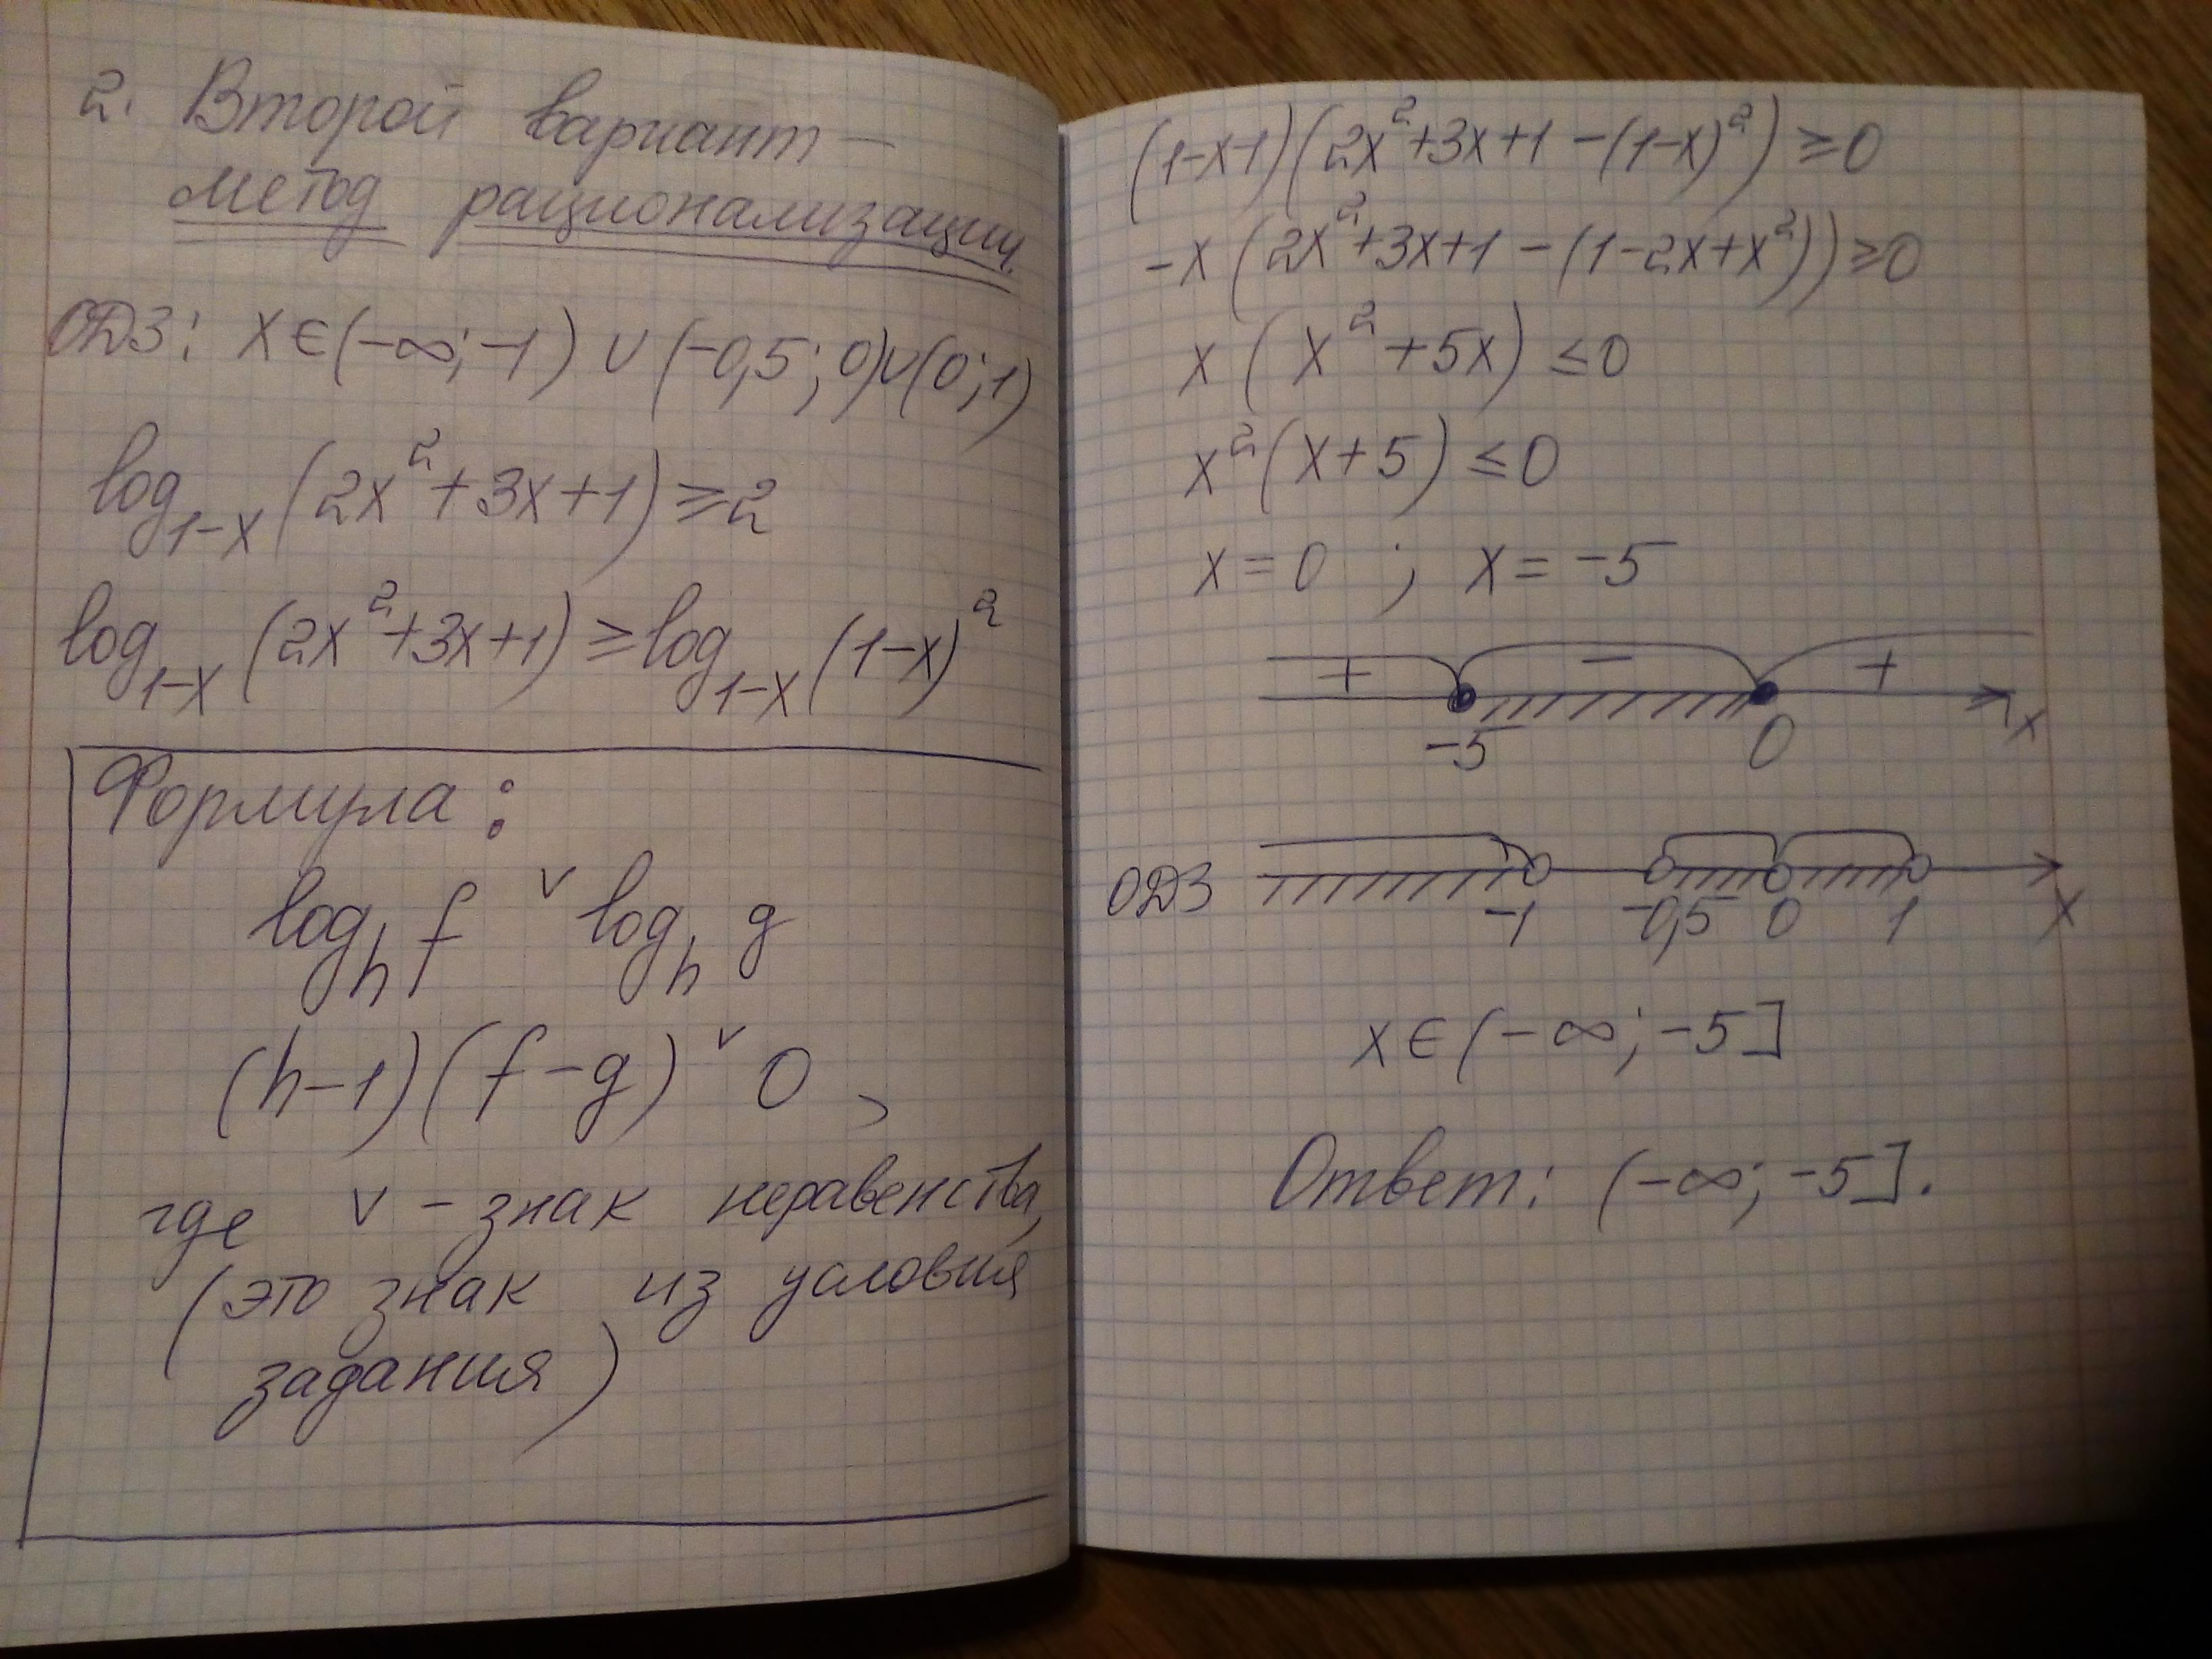 2. Второй вариант –
метод рационализации.
ОДЗ: x∈(-∞; -1) ∪ (-0,5; 0)∪(0; 1)
log₁₋ₓ(2x²+3x+1) ≥ 2
log₁₋ₓ(2x²+3x+1) ≥ log₁₋ₓ(1-x)²
Формула:
logₕ f ∨ logₕ g
(h-1)(f-g) ∨ 0,
где ∨ – знак неравенства,
(это знак из условия
задания)
(1-x-1)(2x²+3x+1-(1-x)²) ≥ 0
-x(2x²+3x+1-(1-2x+x²)) ≥ 0
x(x²+5x) ≤ 0
x²(x+5) ≤ 0
x = 0 ; x = -5
+ − +
-5 0 x
ОДЗ
-1 -0,5 0 1 x
x∈(-∞; -5]
Ответ: (-∞; -5].